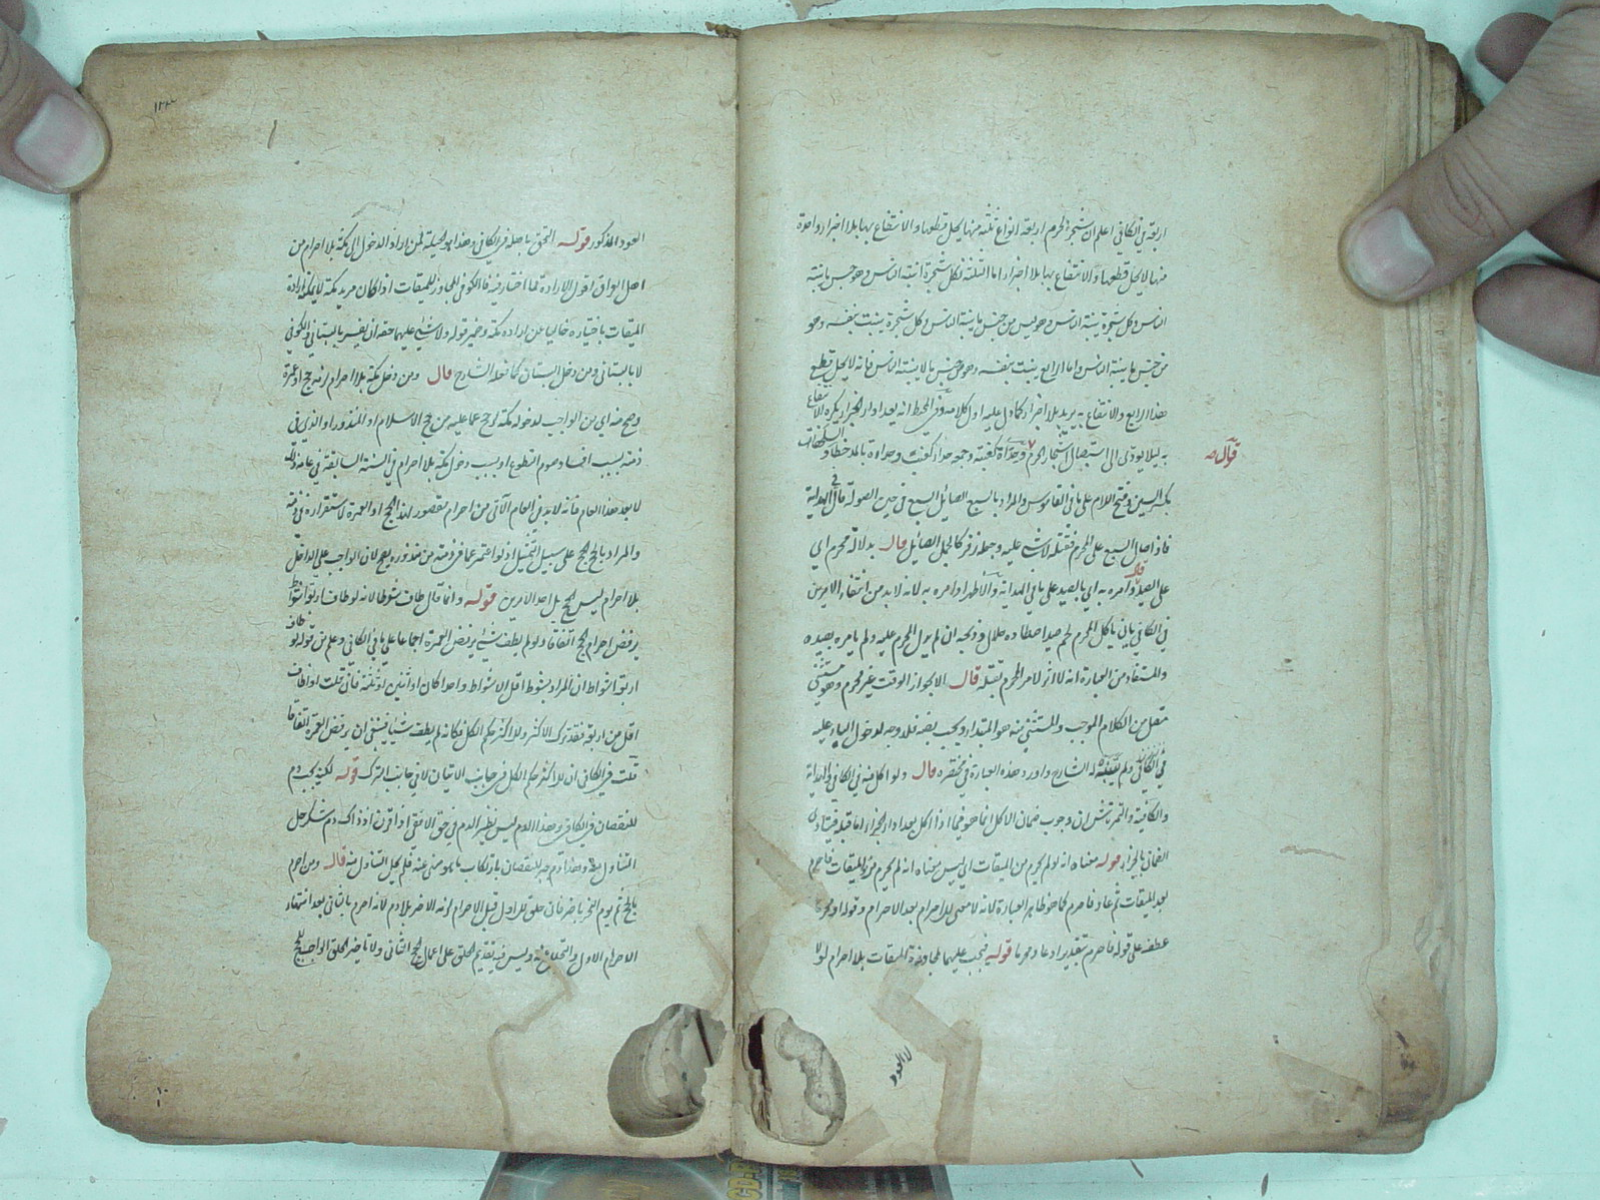 اربعة في الكافي اعلم ان شجر الحرم اربعة انواع ثلثة منها يحل قطعها والانتفاع بها بلا جزاء وواحدة
منها لا يحل قطعها والانتفاع بها بلا جزاء اما الثلثة فكل شجرة انبته الناس وهو جنس ما ينبته
الناس وكل شجرة ينبته الناس وهو ليس من جنس ما ينبته الناس وكل شجرة ينبت بنفسه وهو
من جنس ما ينبته الناس واما الرابع ينبت بنفسه وهو من جنس ما لا ينبته الناس فانه لا يحل قطع
هذا الرابع والانتفاع به يريد بلا جزاء كما دل عليه اول كلامه وفي المحيط انه بعد اداء الجزاء يكره الانتفاع
به ليلا يؤدي الى استيصال اشجار الحرم
قوله
بكسر السين وفتح اللام على ما في القاموس والمراد بالسبع الصائل السبع في حين الصولة قال في الهداية
فاذا صال السبع على المحرم فقتله لا شئ عليه وقال زفر كالجمل الصائل قال بدلالة محرم اي
على الصيد وامره به اي بالصيد على ما في الهداية والاظهر او امره به لانه لا بد من انتفاء الامرين
في الكافي بان ياكل المحرم لحم صيد اصطاده حلال وذبحه ان لم يدل المحرم عليه ولم يامره بصيده
والمستفاد من العبارة انه لا اثر لامر المحرم بقتله قال الا بجواز الوقت غير محرم وهو مستثنى
من الكلام الموجب والمستثنى منه هو المبتدأ ويجب نصبه فلا وجه لدخول الباء عليه
الشارح واورد هذه العبارة في مختصره قال ولو اكل منه في الكافي والهداية
وجوب ضمان الاكل انما هو فيما اذا اكل بعد اداء الجزاء اما قبله فيتأدى
الضمان بالجزاء قوله معناه انه لو لم يحرم من الميقات اي ليس معناه انه لم يحرم من الميقات فاحرم
بعد الميقات ثم عاد فاحرم كما هو ظاهر العبارة لانه لا معنى للاحرام بعد الاحرام وقوله او محرما
عطف على قوله فاحرم بتقدير او عاد محرما قوله فيجب عليهما لمجاوزة الميقات بلا احرام لولا
لا العود
١٢٣
العود المذكور قوله التحق باهله في الكافي وهذا هو الحيلة لمن اراد الدخول الى مكة بلا احرام من
اهل الافاق اقول الارادة مما اختار فيه فالكوفي المجاوز للميقات اذا كان مريد مكة لا يمكنه ارادة
الميقات باختياره خاليا عن ارادة مكة وضمير قوله ولا شئ عليهما حقه ان يفسر بالبستاني والكوفي
لا بالبستاني ومن دخل البستان كما فعله الشارح قال ومن دخل مكة بلا احرام لزمه حج او عمرة
وصح منه اي من الواجب لدخوله مكة لو حج عما عليه من حج الاسلام او المنذور او الذي في
ذمته بسبب افساد صوم التطوع او بسبب دخول مكة بلا احرام في السنة السابقة في عامه ذلك
لا بعد هذا العام فانه لا بد في العام الآتي من احرام مقصور لهذا الحج او العمرة لاستقراره في ذمته
والمراد بالحج الحج على سبيل التمثيل اذ لو اعتمر عما في ذمته من منذوره يصح لان الواجب على الداخل
بلا احرام ليس الحج بل احد الامرين قوله وانما قال طاف شوطا لانه لو طاف اربعة اشواط
يرفض احرام الحج اتفاقا ولو لم يطف شيئا يرفض العمرة اجماعا على ما في الكافي وعلم من قوله لو طاف
اربعة اشواط ان المراد بشوط اقل الاشواط واحدا كان او اثنين او ثلثة فان قلت اذا طاف
اقل من اربعة فقد ترك الاكثر وللاكثر حكم الكل فكانه لم يطف شيئا فينبغي ان يرفض العمرة اتفاقا
قلت في الكافي ان للاكثر حكم الكل في جانب الاتيان لا في جانب الترك قوله لكنه يجب دم
للنقصان في الكافي وهذا الدم ليس نظير الدم في حق الافقي اذا قرن اذ ذاك دم شكر حل
التناول منه وهذا دم جبر للنقصان بارتكاب ما هو منهي عنه فلم يحل التناول منه قال ومن احرم
بالحج ثم يوم النحر باخر فان حلق للاول قبل الاحرام لزمه الاخر بلا دم لانه احرم بالثاني بعد انتهاء
الاحرام الاول والتحلل منه وليس فيه تقديم الحلق على اعمال الحج الثاني ولا تاخير الحلق الواجب للحج